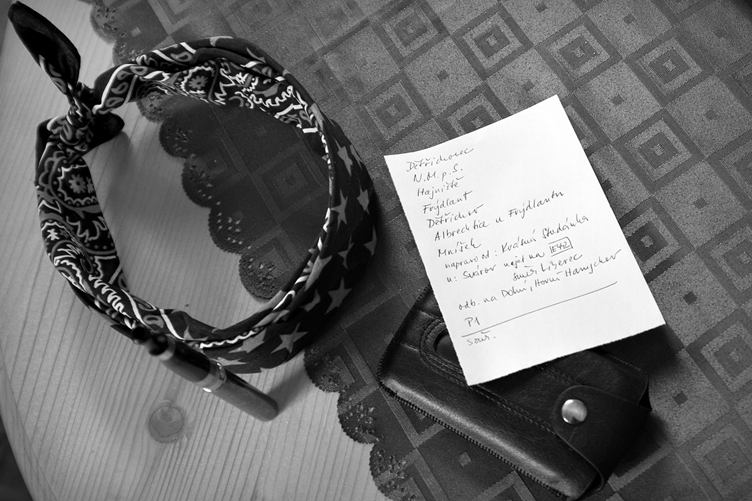 Dětřichovec
N.M.p.S.
Hajniště
Frýdlant
Dětřichov
Albrechtice u Frýdlantu
Mníšek
napravo od: Krásná Studánka
u: Svárov najet na E442
směr Liberec
odb. na Dolní, Horní Hanychov
P1
souř.